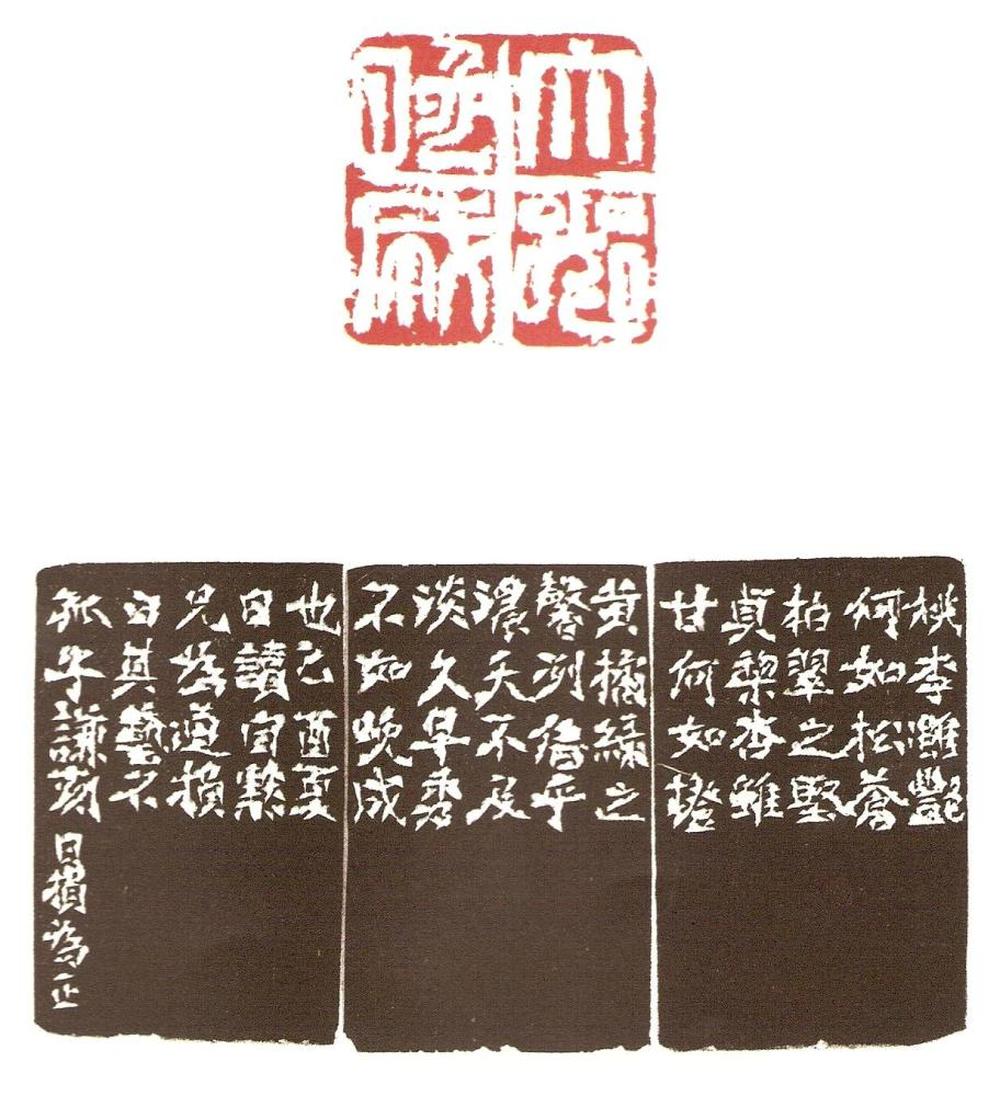 大器
晚成
桃李雖艷
何如松蒼
柏翠之堅
貞梨杏雖
甘何如橙
黃橘綠之
馨洌信乎
濃夭不及
淡久早秀
不如晚成
也己酉夏
日讀自默
兄為道損
白其藝不
孤子謙刻
日損為正